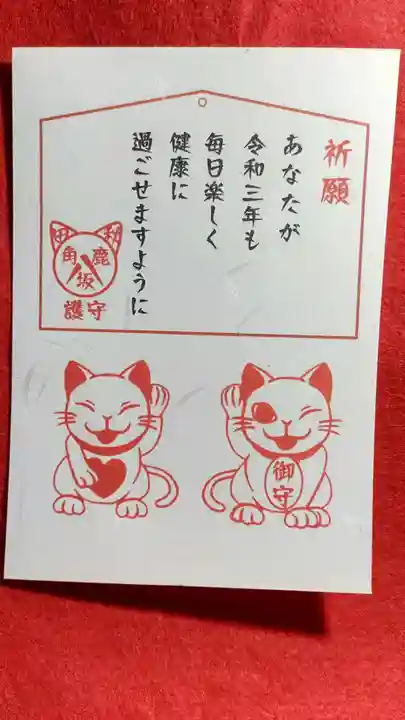 祈願
あなたが
令和三年も
毎日楽しく
健康に
過ごせますように
角鹿
坂
護守
御守